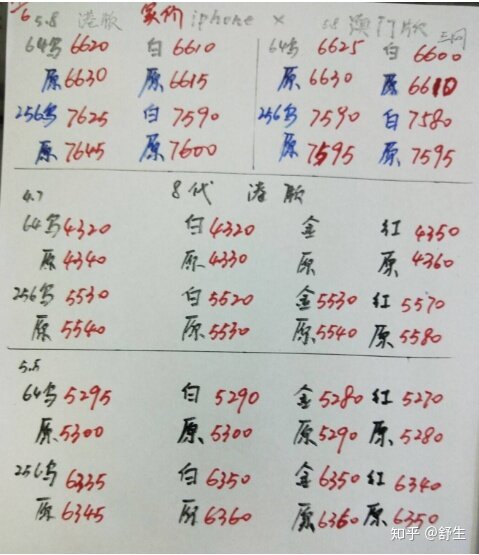 5.8 港版 实价 iphone X 5.8 澳门版 三网
64乌 6620 白 6610 64乌 6625 白 6600
原 6630 原 6615 原 6630 原 6610
256乌 7625 白 7590 256乌 7590 白 7580
原 7645 原 7600 原 7595 原 7595
4.7 8代 港版
64乌 4320 白 4320 金 红 4350
原 4340 原 4330 原 原 4360
256乌 5530 白 5520 金 5530 红 5570
原 5540 原 5530 原 5540 原 5580
5.5
64乌 5295 白 5290 金 5280 红 5270
原 5300 原 5300 原 5290 原 5280
256乌 6335 白 6350 金 6350 红 6340
原 6345 原 6360 原 6360 原 6350
知乎 @舒生